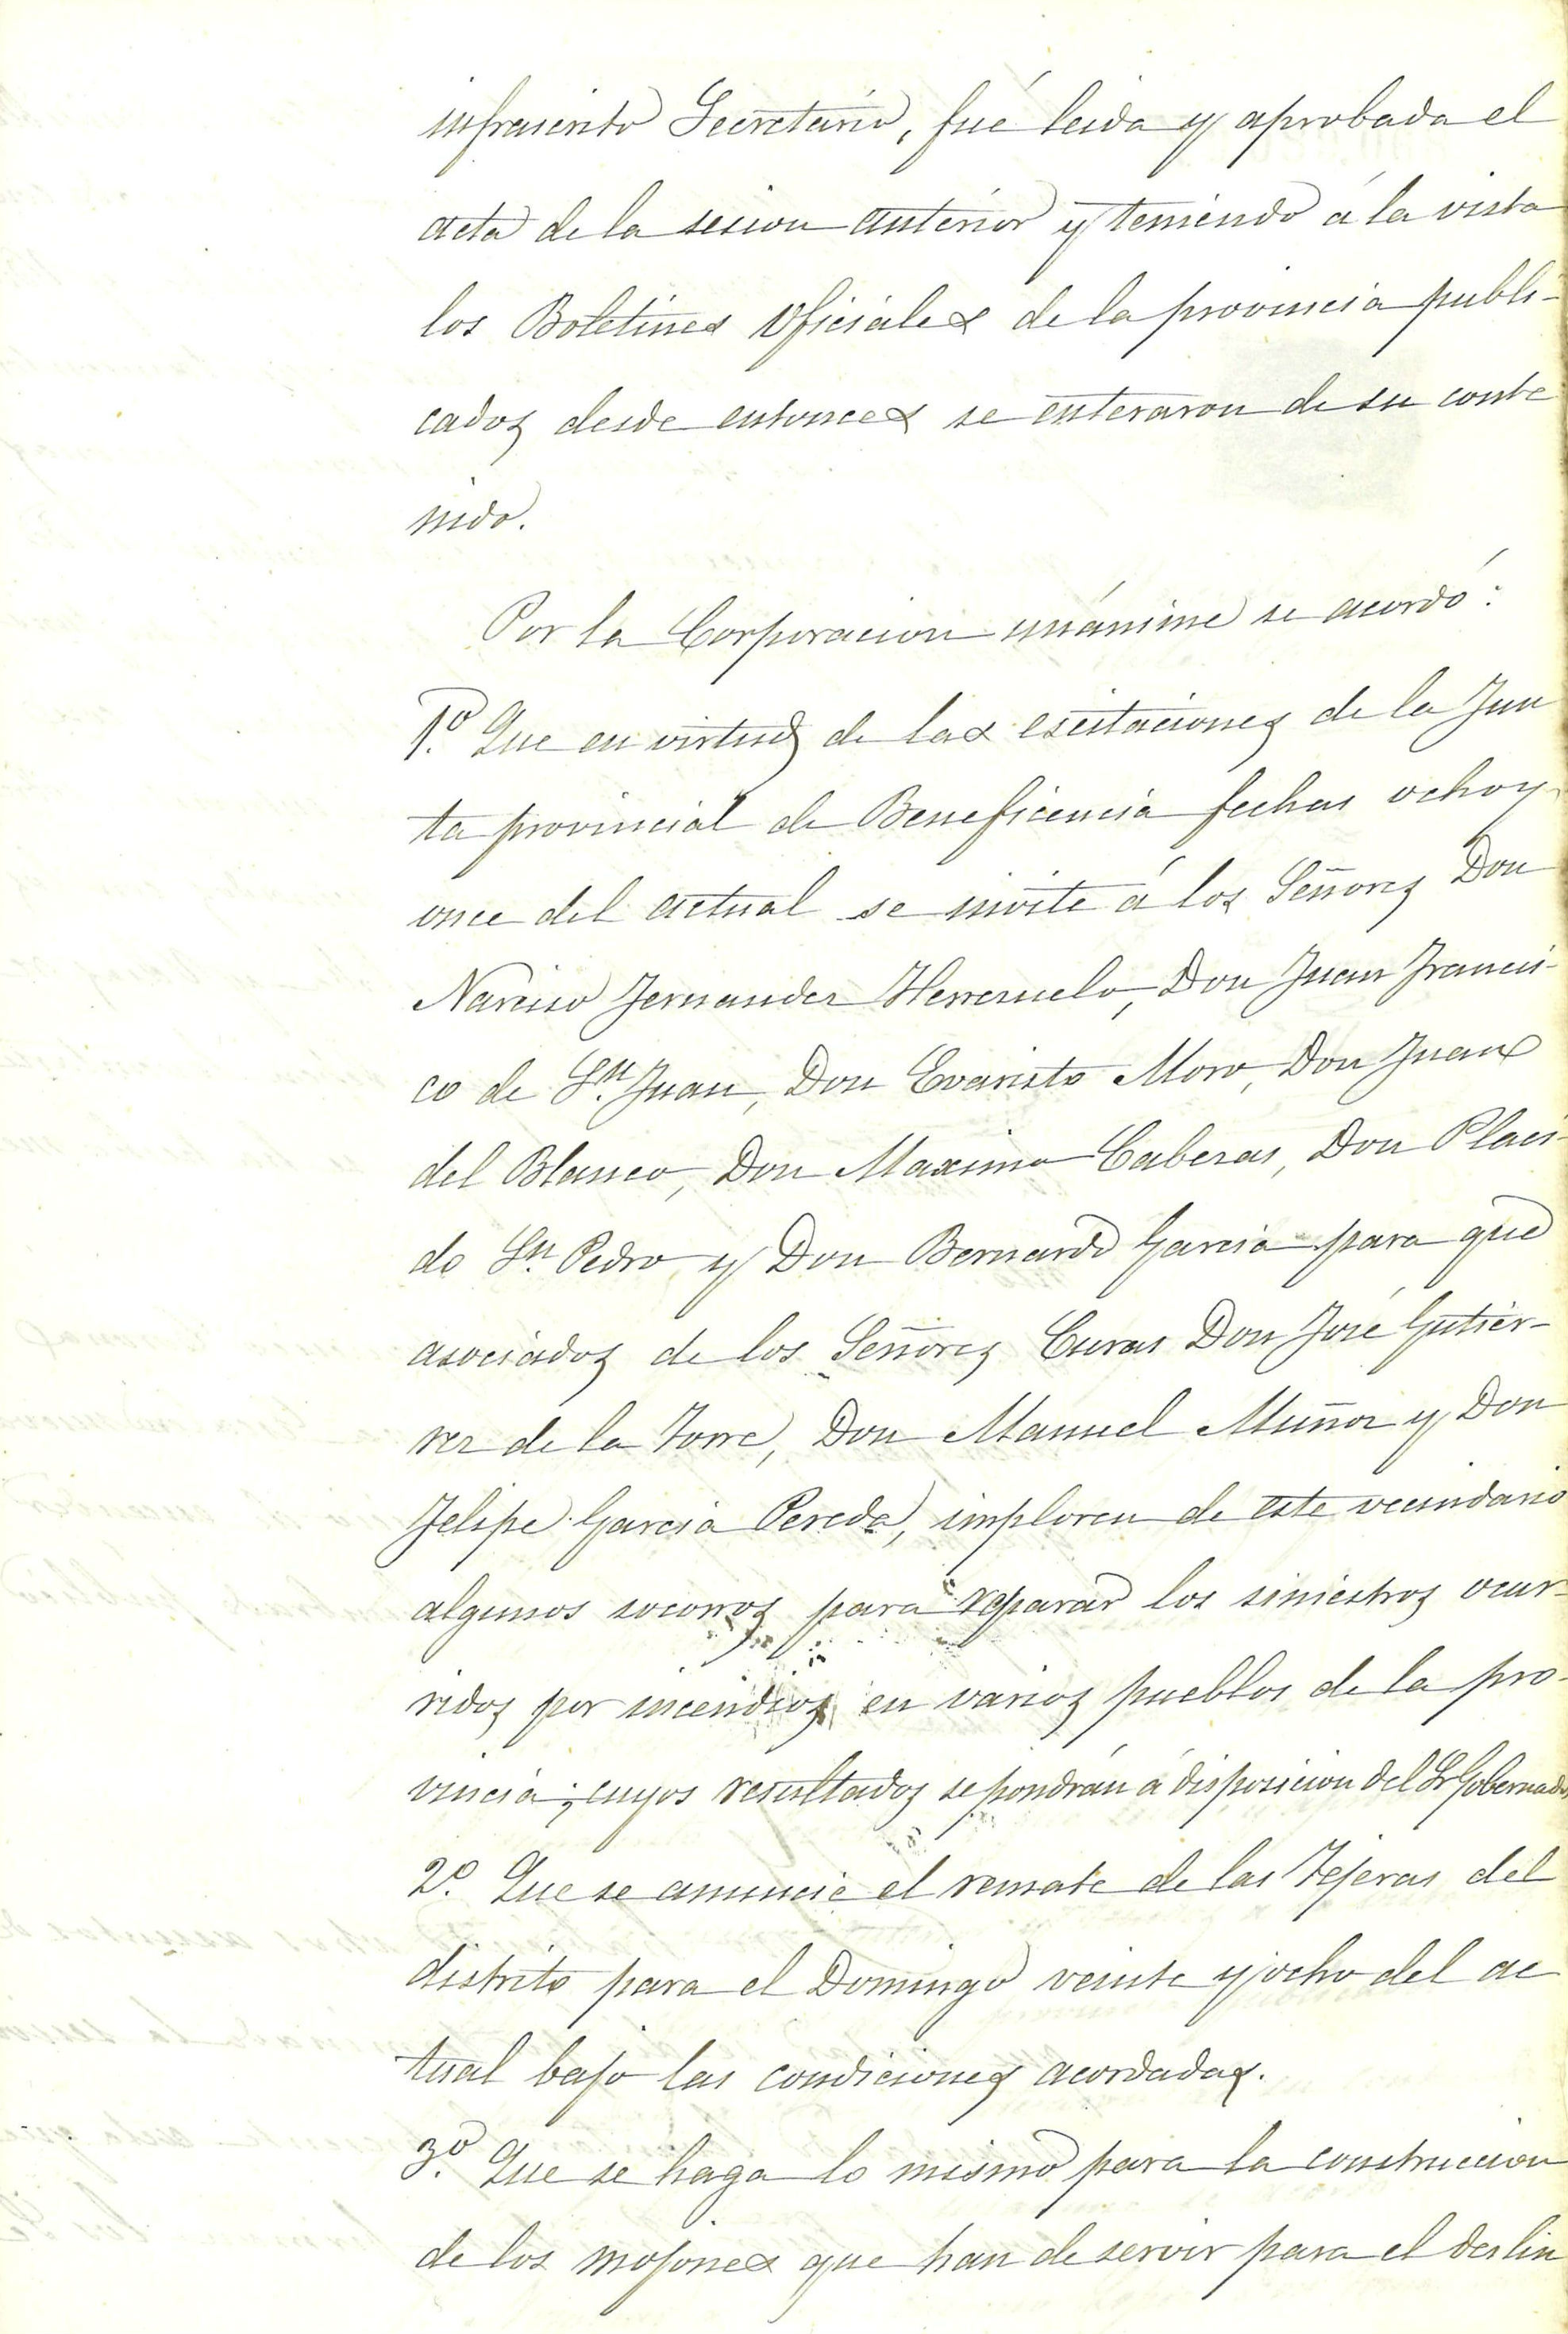 infrascrito Secretario, fué leida y aprobada el
acta de la sesion anterior y teniendo á la vista
los Boletines Oficiales de la provincia publi-
cados desde entonces se enteraron de su conte
nido.
Por la Corporacion unánime se acordó:
1.º Que en virtud de las escitaciones de la Jun
ta provincial de Beneficencia fechas ocho y
once del actual se invite á los Señores Don
Narciso Fernandez Herreruelo, Don Juan Francis-
co de Sn. Juan, Don Evaristo Moro, Don Juan
del Blanco, Don Maximo Cabezas, Don Placi-
do Sn. Pedro y Don Bernardo Garcia para que
asociados de los Señores Curas Don José Gutier-
rez de la Torre, Don Manuel Muñoz y Don
Felipe Garcia Pereda, imploren de este vecindario
algunos socorros para reparar los siniestros ocur-
ridos por incendios en varios pueblos de la pro-
vincia; cuyos resultados se pondrán á disposicion del Sr Gobernador
2.º Que se anuncie el remate de las Tejeras del
distrito para el Domingo veinte y ocho del ac
tual bajo las condiciones acordadas.
3.º Que se haga lo mismo para la construccion
de los mojones que han de servir para el deslin